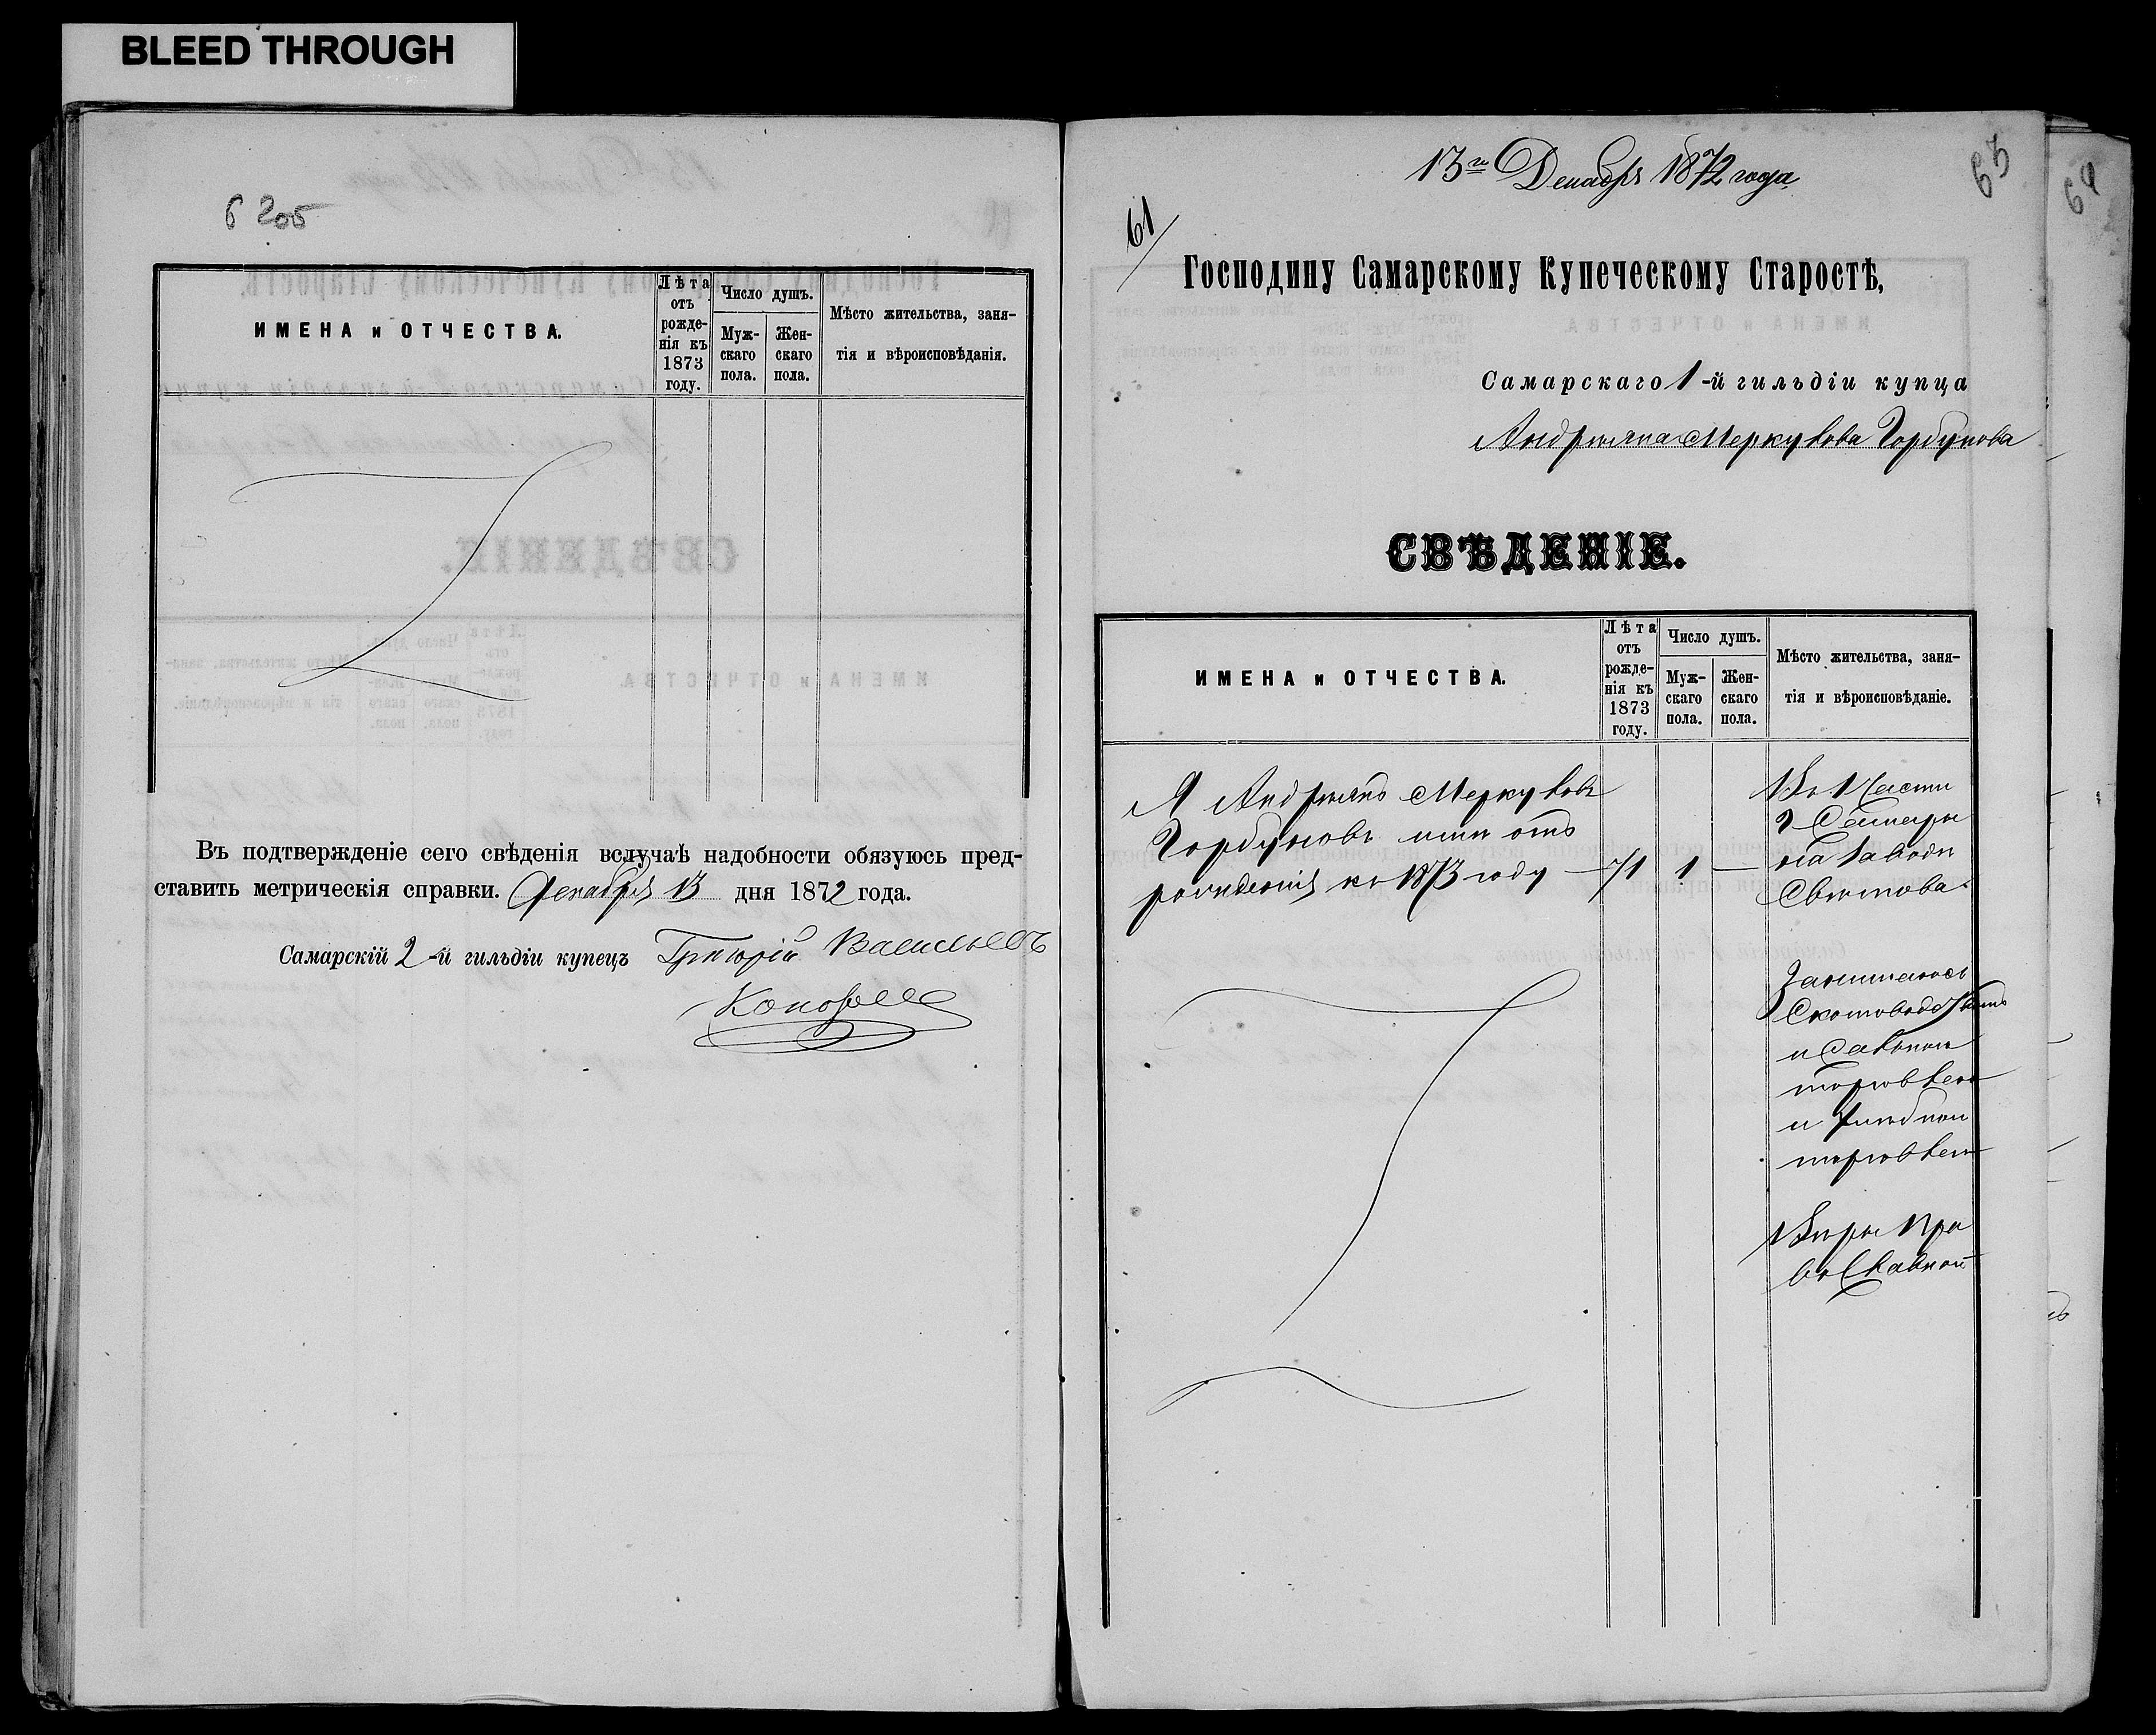 BLEED THROUGH
ИМЕНА и ОТЧЕСТВА.
Лѣта отъ рожденія къ 1873 году.
Число душъ.
Мужскаго пола.
Женскаго пола.
Мѣсто жительства, заня-
тія и вѣроисповѣданія.
Въ подтвержденіе сего свѣденія вслучаѣ надобности обязуюсь пред-
ставить метрическія справки. Декабря 13 дня 1872 года.
Самарскій 2-й гильдіи купецъ Григорій Васильевъ
13го Декабря 1872 года
63
64
61
Господину Самарскому Купеческому Старостѣ,
Самарскаго 1-й гильдіи купца
Андріяна Меркулова Горбунова
СВѢДЕНІЕ.
ИМЕНА и ОТЧЕСТВА.
Лѣта отъ рожденія къ 1873 году.
Число душъ.
Мужскаго пола.
Женскаго пола.
Мѣсто жительства, заня-
тія и вѣроисповѣданіе.
Я Андріянъ Меркуловъ
Горбуновъ отъ
рожденія къ 1873 году — 71 1 —
Въ 1 Части
г Самары
Занимаюсь
Скотоводствомъ
и
торговлею
и
торговлею
Веры Пра
вославной